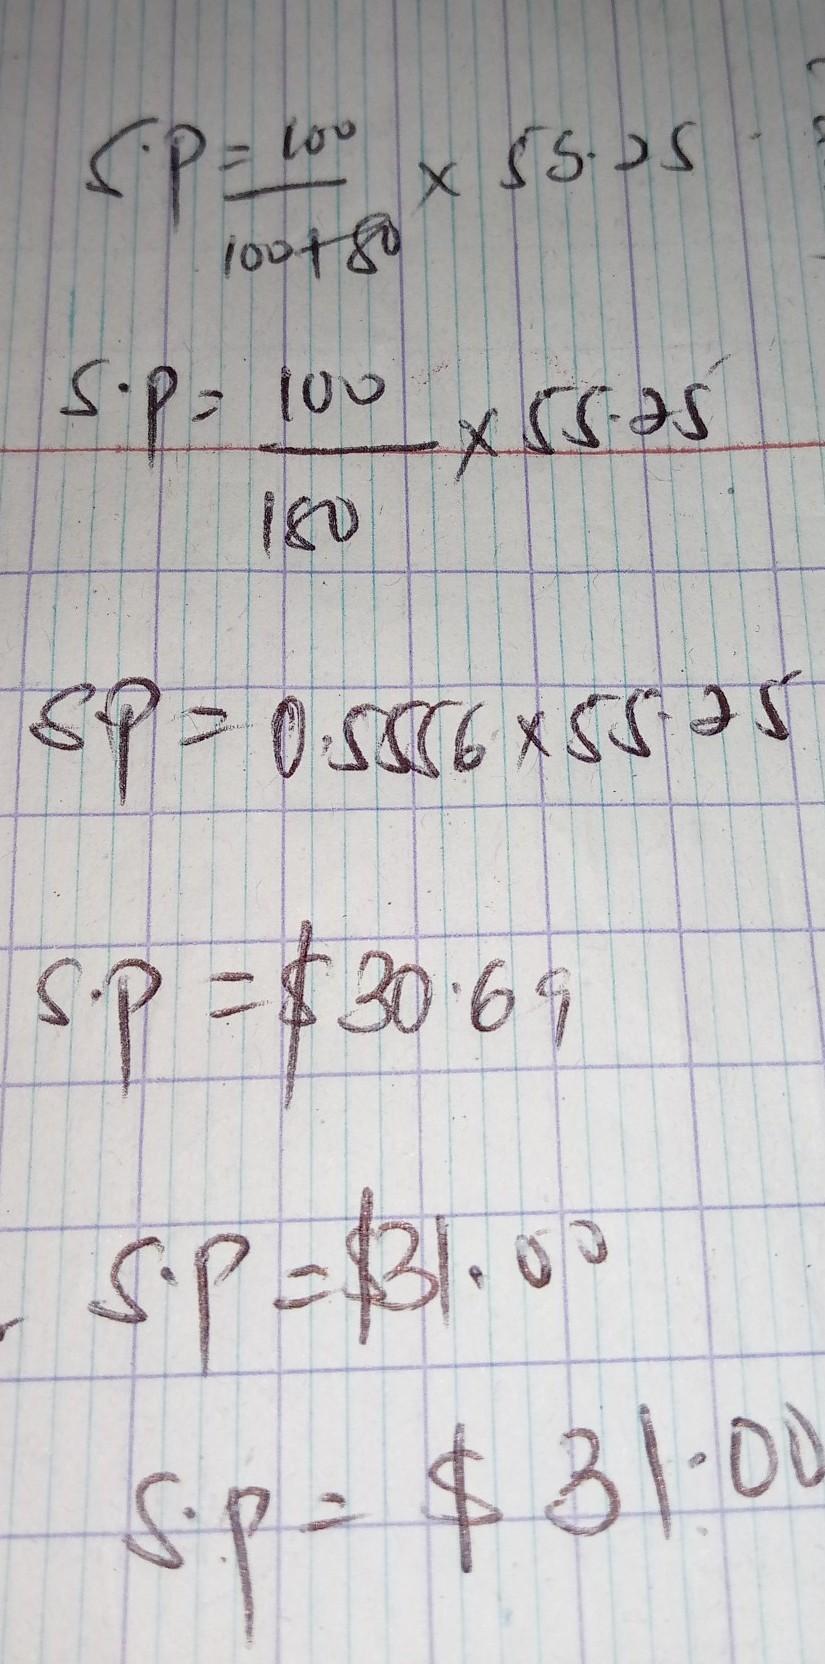 S.P = 100 / 100+80 × 55.25
S.P = 100 / 180 × 55.25
S.P = 0.5556 × 55.25
S.P = $30.69
S.P = $31.00
S.P = $31.00